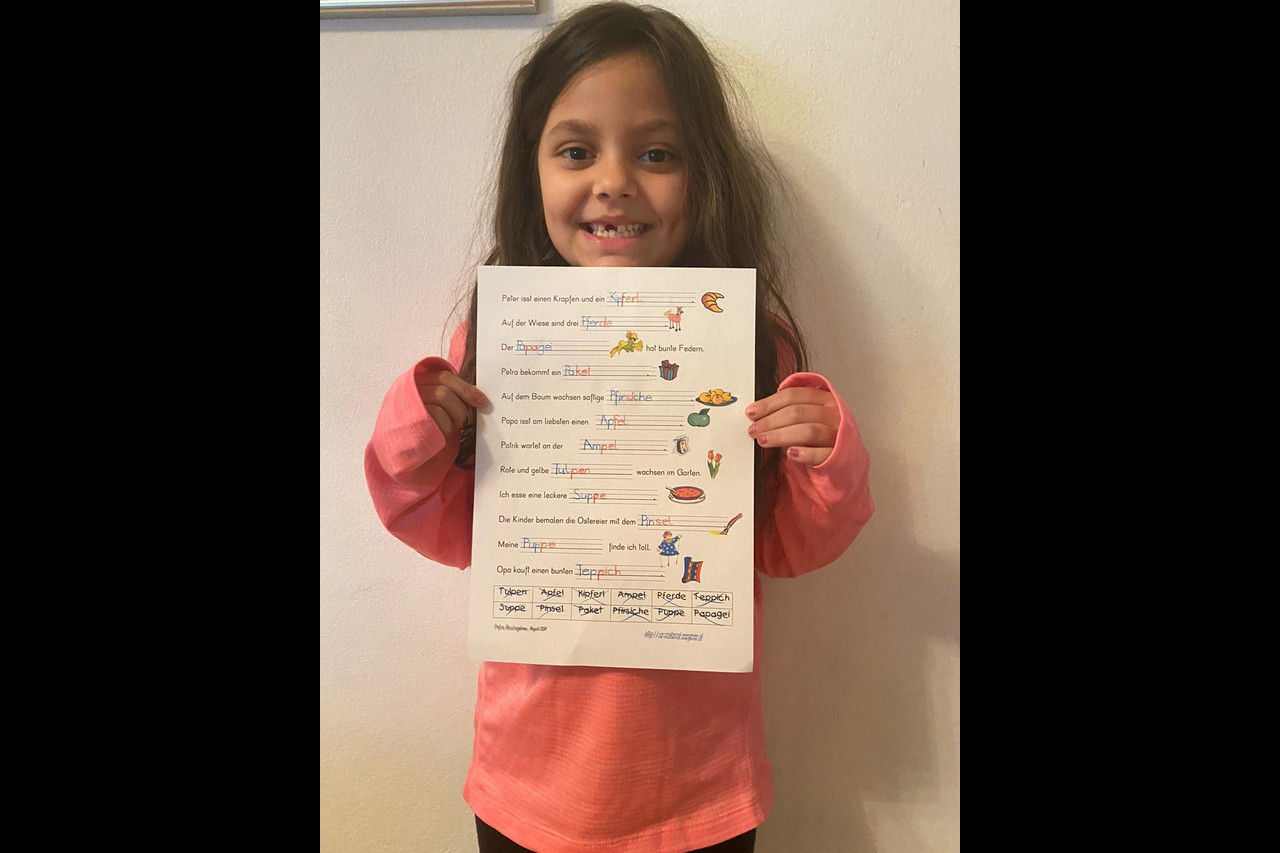 Peter isst einen Krapfen und ein Kipferl.
Auf der Wiese sind drei Pferde.
Der Papagei hat bunte Federn.
Petra bekommt ein Paket.
Auf dem Baum wachsen saftige Pfirsiche.
Papa isst am liebsten einen Apfel.
Patrik wartet an der Ampel.
Rote und gelbe Tulpen wachsen im Garten.
Ich esse eine leckere Suppe.
Die Kinder bemalen die Ostereier mit dem Pinsel.
Meine Puppe finde ich toll.
Opa kauft einen bunten Teppich.
Tulpen Apfel Kipferl Ampel Pferde Teppich
Suppe Pinsel Paket Pfirsiche Puppe Papagei